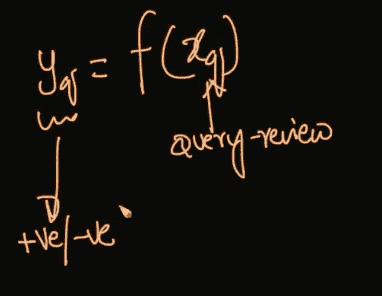 yq = f(xq)
query-review
+ve/-ve